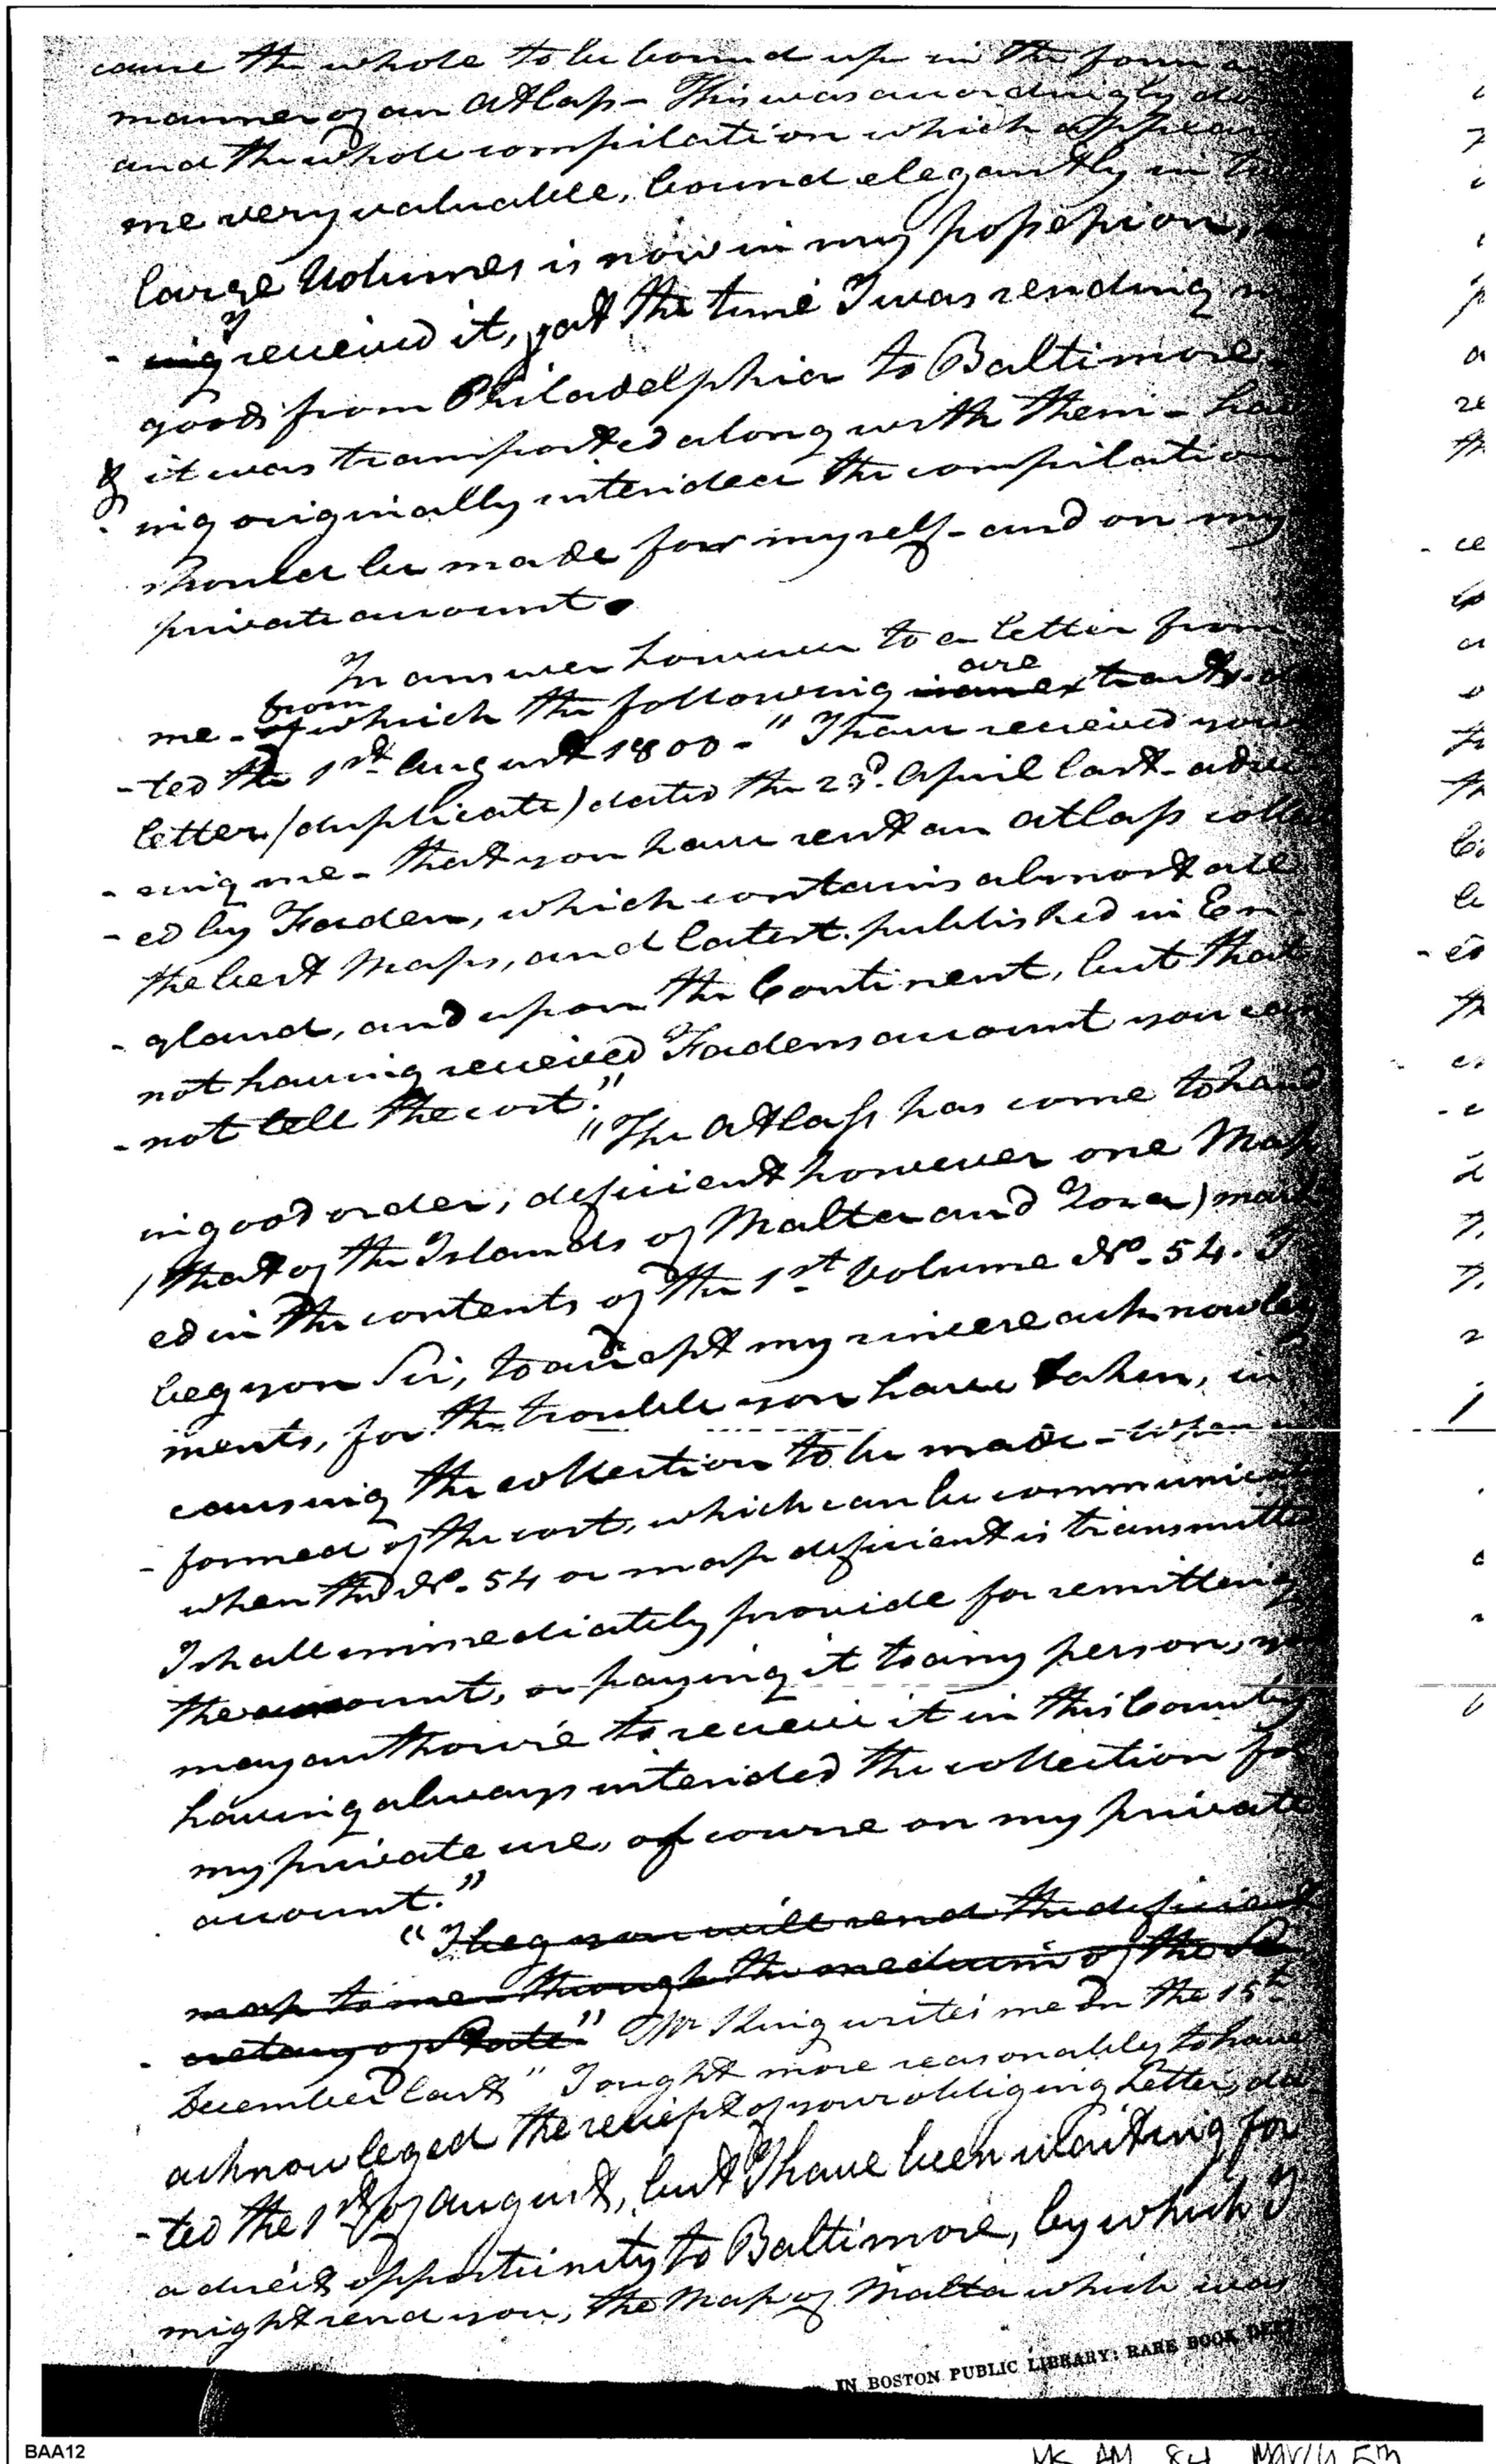 cause the whole to be bound up in the form
manner of an Atlass - This was accordingly do
and the whole compilation which appears
me very valuable, bound elegantly in
large Volumes is now in my possession,
I
- ing received it, at the time I was sending
goods from Philadelphia to Baltimore
& it was transported along with them - hav
- ing originally intended the compilation
should be made for myself - and on my
private account.
In answer however to a letter from
are
from
me - of which the following is an extracts da
- ted the 1st August 1800 - "I have received your
letter (duplicate) dated the 23d. April last - advi
- sing me - that you have sent an Atlass collec
- ed by Faden, which contains almost all
the best Maps, and latest published in En
- gland, and upon the Continent, but that
not having received Fadens account you can
- not tell the cost."
"The Atlass has come to hand
in good order, deficient however one Map
(that of the Islands of Malta and Goza) mark
ed in the contents of the 1st Volume No. 54. I
beg you Sir, to accept my sincere acknowledg
ments, for the trouble you have taken, in
causing the collection to be made - when in
- formed of the cost, which can be communicat
when the No. 54 or map deficient is transmitted
I shall immediately provide for remitting
the amount, or paying it to any person, you
may authorise to receive it in this Country
having always intended the collection for
my private use, of course on my private
account."
"I beg you will send the deficient
map to me through the medium of the Se
- cretary of State." Mr King writes me on the 15th
December last "I ought more reasonably to have
acknowleged the receipt of your obliging Letter, da
- ted the 1st of August, but I have been waiting for
a direct opportunity to Baltimore, by which I
might send you, the Map of Malta which was
IN BOSTON PUBLIC LIBRARY: RARE BOOK DEPT
BAA12
Ms AM 84 March 5th